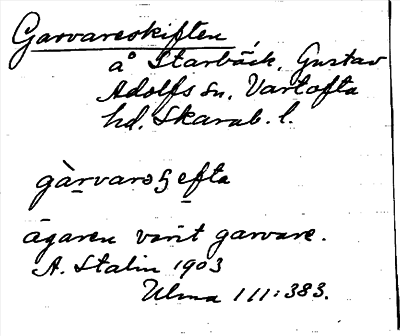 Garvareskiften,
å Starbäck, Gustav
Adolfs sn. Vartofta
hd. Skarab. l.
gàrvarəʂefta
ägaren varit garvare.
A. Stalin 1903
Ulma 111:383.